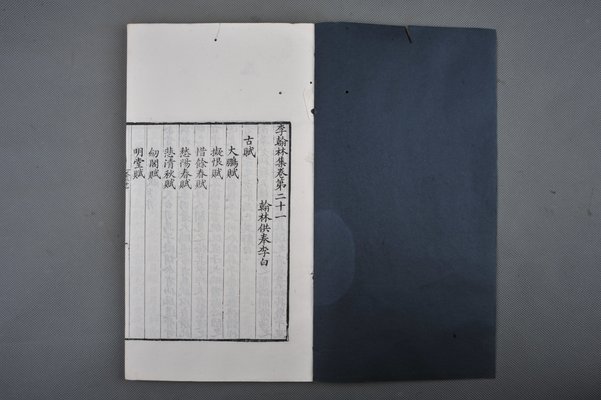 李翰林集卷第二十一
翰林供奉李白
古賦
大鵬賦
擬恨賦
惜餘春賦
愁陽春賦
悲清秋賦
劒閣賦
明堂賦